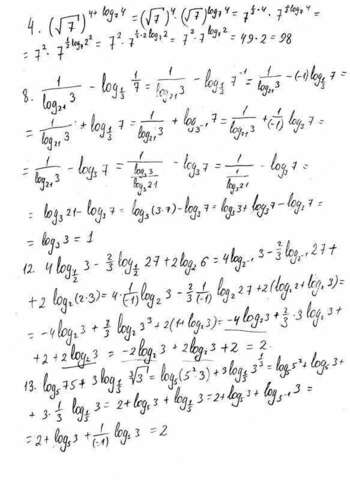 4. (√7)^{4+log_7 4} = (√7)^4 · (√7)^{log_7 4} = 7^{½·4} · 7^{½ log_7 4} =
= 7^2 · 7^{½ log_7 2^2} = 7^2 · 7^{½·2 log_7 2} = 7^2 · 7^{log_7 2} = 49·2 = 98
8. 1/log_{21} 3 - log_{1/3} 1/7 = 1/log_{21} 3 - log_{1/3} 7^{-1} = 1/log_{21} 3 - (-1) log_{1/3} 7 =
= 1/log_{21} 3 + log_{1/3} 7 = 1/log_{21} 3 + log_{3^{-1}} 7 = 1/log_{21} 3 + 1/(-1) log_3 7 =
= 1/log_{21} 3 - log_3 7 = 1/(log_3 3/log_3 21) - log_3 7 = 1/(1/log_3 21) - log_3 7 =
= log_3 21 - log_3 7 = log_3 (3·7) - log_3 7 = log_3 3 + log_3 7 - log_3 7 =
= log_3 3 = 1
12. 4 log_{1/2} 3 - 2/3 log_{1/2} 27 + 2 log_2 6 = 4 log_{2^{-1}} 3 - 2/3 log_{2^{-1}} 27 +
+ 2 log_2 (2·3) = 4 · 1/(-1) log_2 3 - 2/3 · 1/(-1) log_2 27 + 2 (log_2 2 + log_2 3) =
= -4 log_2 3 + 2/3 log_2 3^3 + 2(1 + log_2 3) = -4 log_2 3 + 2/3 · 3 log_2 3 +
+ 2 + 2 log_2 3 = -2 log_2 3 + 2 log_2 3 + 2 = 2.
13. log_5 75 + 3 log_{1/5} ∛3 = log_5 (5^2·3) + 3 log_{1/5} 3^{1/3} = log_5 5^2 + log_5 3 +
+ 3 · 1/3 log_{1/5} 3 = 2 + log_5 3 + log_{1/5} 3 = 2 + log_5 3 + log_{5^{-1}} 3 =
= 2 + log_5 3 + 1/(-1) log_5 3 = 2